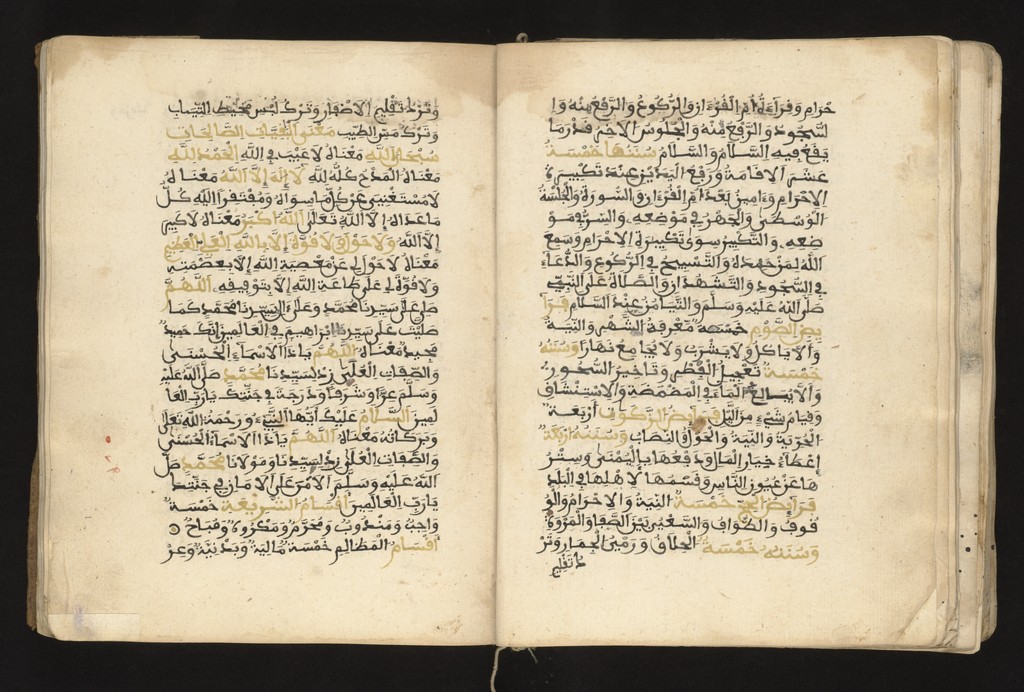 حرام وقراءة أم القرءان والركوع والرفع منه وا
لسجود والرفع منه والجلوس الاخر قدر ما
يقع فيه السلام والسلام سننها خمسة
عشر الاقامة ورفع اليدين عند تكبيرة
الاحرام وءامين بعد أم القرءان والسورة والجلسة
الوسطى والجهر في موضعه والسر في مو
ضعه والتكبير سوى تكبيرة الاحرام وسمع
الله لمن حمده والتسبيح في الركوع والدعاء
في السجود والتشهدان والصلاة على النبي
صلى الله عليه وسلم والتيامن عند السلام فرا
يض الصوم خمسة معرفة الشهر والنية
وألا ياكل ولا يشرب ولا يجامع نهارا وسننه
خمسة تعجيل الفطر وتاخير السحور
وألا يبالغ الماء في المضمضة والاستنشاق
وقيام شيء من اليل فرايض الزكوة أربعة
الحرية والنية والحول والنصاب وسننه اربعة
إعطاء خيار المال ودفعها باليمنى وستر
ها عن عيون الناس وقسمها لاهلها في البلد
فرايض الحج خمسة النية والاحرام والو
قوف والطواف والسعي بين الصفا والمروة
وسننه خمسة الحلاق ورمي الجمار وتر
ك تقليم
وترك تقليم الاضفار وترك لبس محيط الثياب
وترك مس الطيب معنى الباقيات الصالحات
سبحان الله معناه لا عيب في الله الحمد لله
معناه المدح كله لله لا إله إلا الله معناه
لا مستغني عن كل ما سواه ومفتقرا الله كل
ما عداه إلا الله تعالى الله أكبر معناه لا كبير
إلا الله ولا حول ولا قوة إلا بالله العلي العظيم
معناه لا حول لي عن معصية الله إلا بعصمته
ولا قوة لي على طاعة الله إلا بتوفيقه اللهم
صل على سيدنا محمد وعلى ءال سيدنا محمد كما
صليت على سيدنا إبراهيم في العالمين إنك حميد
مجيد معناه اللهم يا ذا الاسماء الحسنى
والصفات العلى زد لسيدنا محمد صلى الله عليه
وسلم عزا وشرفا ودرجة في جنتك يا رب العا
لمين السلام عليك أيها النبيء ورحمة الله تعلى
وبركاته معناه اللهم يا ذا الاسماء الحسنى
والصفات العلى زد لسيدنا ومولانا محمد صلى
الله عليه وسلم الأمن على الامان في جنتك
يا رب العالمين أقسام الشريعة خمسة
واجب ومندوب ومحرم ومكروه ومباح
أقسام المظالم خمسة مالية وبدنية وعر